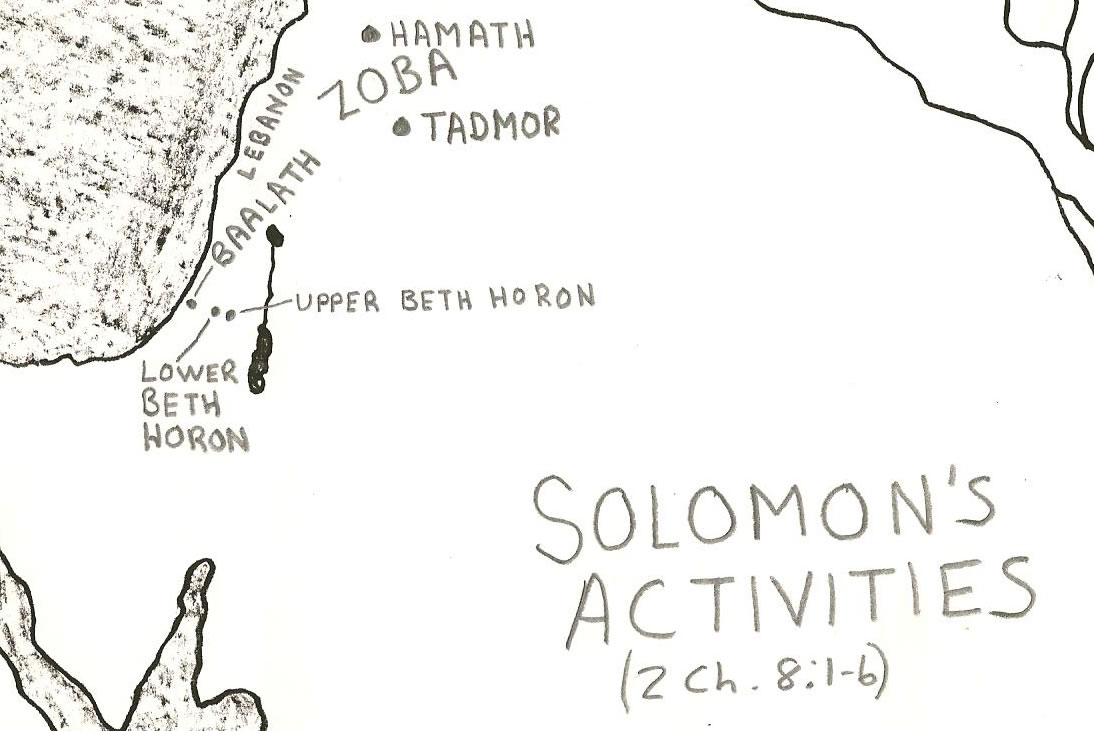 HAMATH
ZOBA
LEBANON
TADMOR
BAALATH
UPPER BETH HORON
LOWER
BETH
HORON
SOLOMON'S
ACTIVITIES
(2 Ch. 8:1-6)